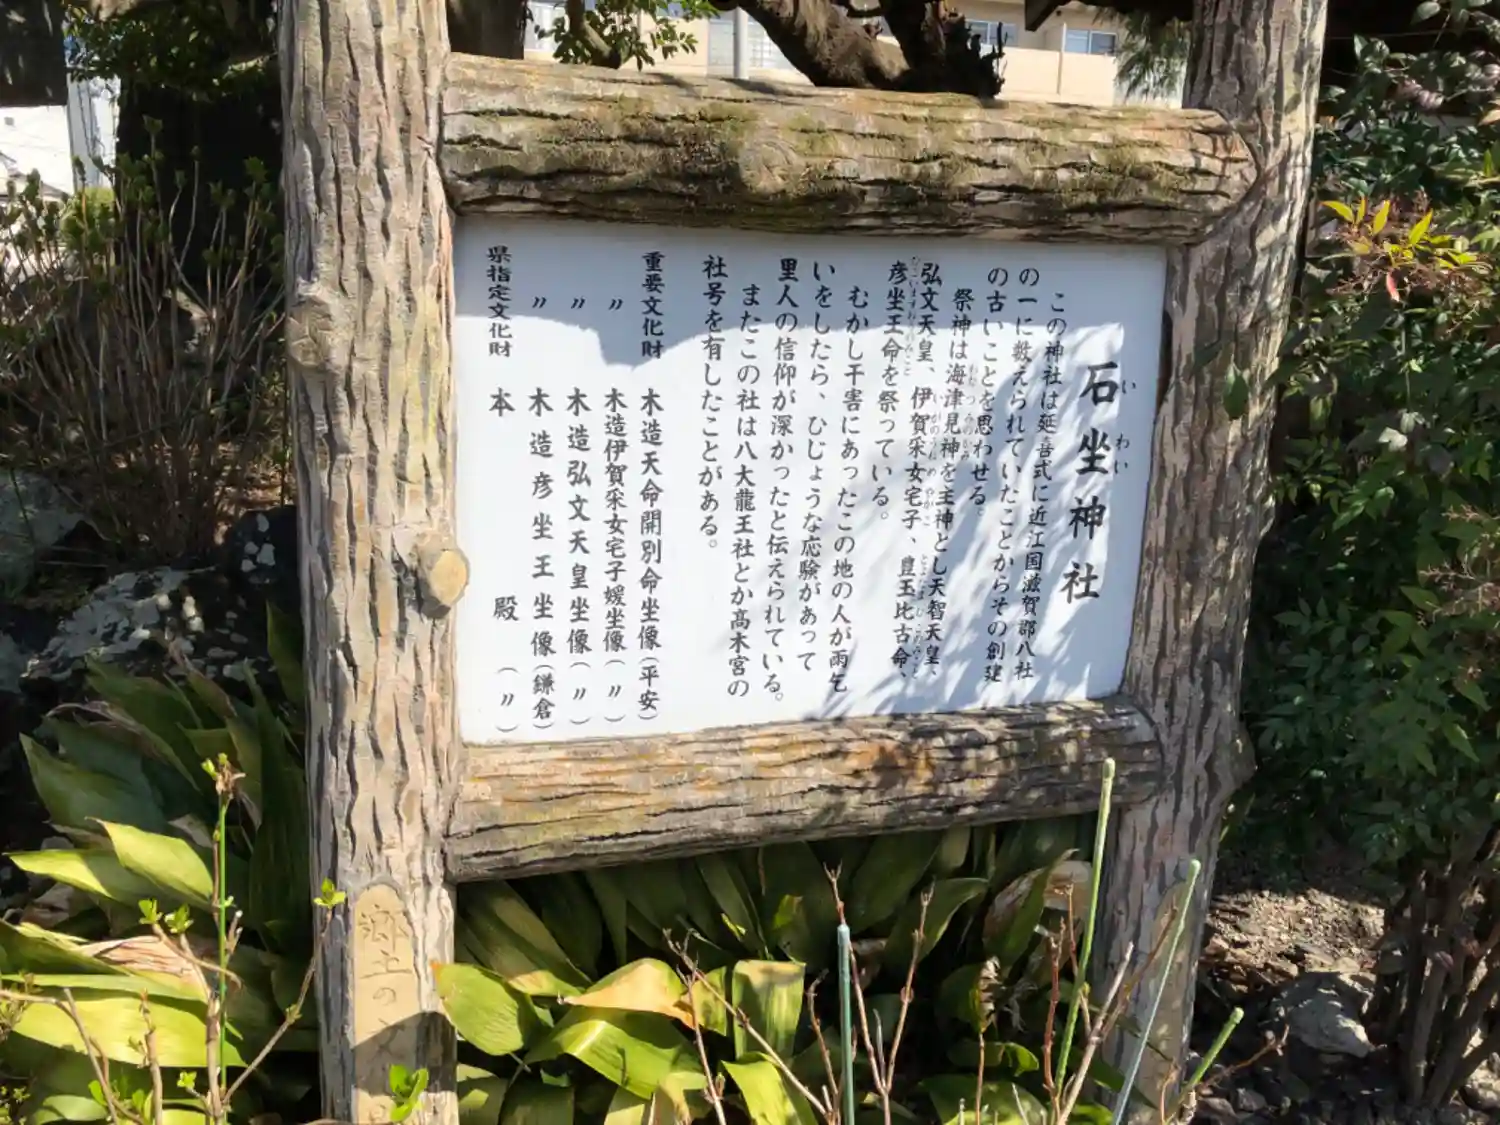 石坐神社
いわい
この神社は延喜式に近江国滋賀郡八社
の一に数えられていたことからその創建
の古いことを思わせる。
祭神は海津見神を主神とし天智天皇、
弘文天皇、伊賀采女宅子、豊玉比古命、
彦坐王命を祭っている。
むかし干害にあったこの地の人が雨乞
いをしたら、ひじょうな応験があって
里人の信仰が深かったと伝えられている。
またこの社は八大龍王社とか高木宮の
社号を有したことがある。
重要文化財 木造天命開別命坐像(平安)
〃 木造伊賀采女宅子媛坐像(〃)
〃 木造弘文天皇坐像(〃)
〃 木造彦坐王坐像(鎌倉)
県指定文化財 本殿(〃)
郷土の